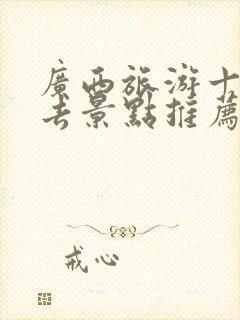 廣西旅游十
去景點推薦
戒心